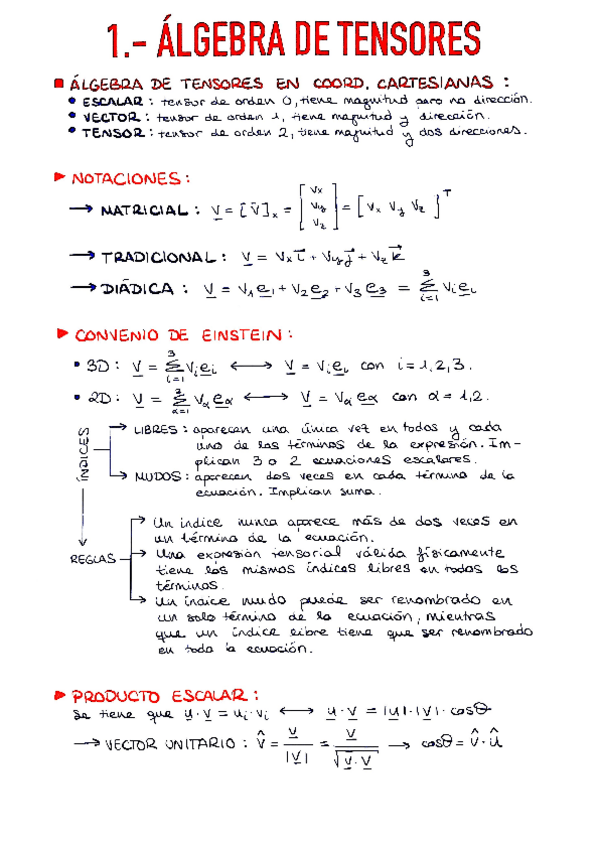 1.- ÁLGEBRA DE TENSORES
ÁLGEBRA DE TENSORES EN COORD. CARTESIANAS :
• ESCALAR : tensor de orden 0, tiene magnitud pero no dirección.
• VECTOR : tensor de orden 1, tiene magnitud y dirección.
• TENSOR : tensor de orden 2, tiene magnitud y dos direcciones.
► NOTACIONES :
→ MATRICIAL : v = [v]ₓ = [vx vy vz] = [vx vy vz]ᵀ
→ TRADICIONAL : v = vx i⃗ + vy j⃗ + vz k⃗
→ DIÁDICA : v = v₁e₁ + v₂e₂ + v₃e₃ = Σ³ᵢ₌₁ vᵢeᵢ
► CONVENIO DE EINSTEIN :
• 3D : v = Σ³ᵢ₌₁ vᵢeᵢ ⟷ v = vᵢeᵢ con i = 1,2,3.
• 2D : v = Σ³α₌₁ vα eα ⟷ v = vα eα con α = 1,2.
ÍNDICES
LIBRES : aparecen una única vez en todos y cada
uno de los términos de la expresión. Im-
plican 3 o 2 ecuaciones escalares.
MUDOS : aparecen dos veces en cada término de la
ecuación. Implican suma.
REGLAS
Un índice nunca aparece más de dos veces en
un término de la ecuación.
Una expresión tensorial válida físicamente
tiene los mismos índices libres en todos los
términos.
Un índice mudo puede ser renombrado en
un solo término de la ecuación, mientras
que un índice libre tiene que ser renombrado
en toda la ecuación.
► PRODUCTO ESCALAR :
Se tiene que u · v = uᵢ · vᵢ ⟷ u · v = |u| · |v| · cosθ
→ VECTOR UNITARIO : v̂ = v / |v| = v / √(v · v) → cosθ = v̂ · û